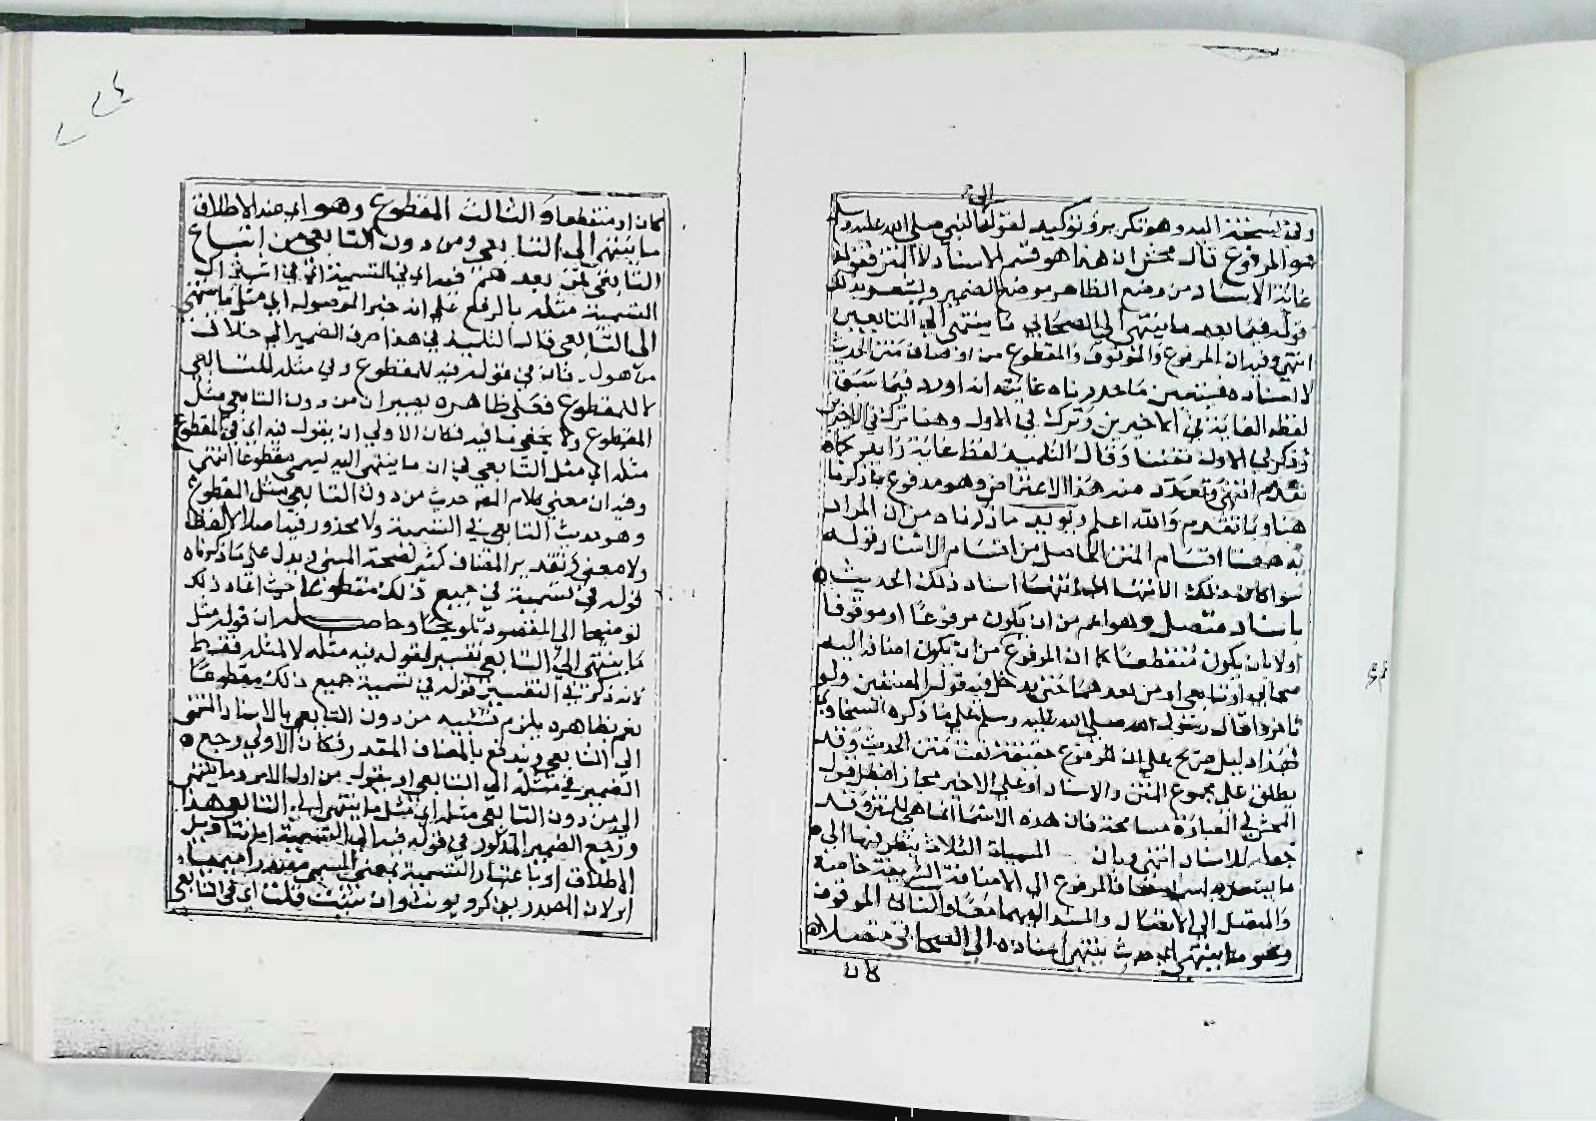 الى
وفي نسخة اليه وهو تكرير وتوكيد لقوله النبي صلى الله عليه وسلم
هو المرفوع قال محش ان هذا هو قسم الاسناد لا المتن فقوله
غاية الاسناد من وضع الظاهر موضع الضمير
قوله فيما بعد ما ينتهي الى الصحابي ما ينتهي الى التابعي
انتهى وفيه ان المرفوع والموقوف والمقطوع من اوصاف متن الحديث
لا اسناده فيتعين ما حررناه غايته انه اورد فيما سبق
لفظ الغاية في الاخيرين وترك في الاول وهنا ترك في الاخيرين
وذكر في الاول تفننا وقال التلميذ لفظ غاية زايد كما
تقدم انتهى وتقدم منه هذا الاعتراض وهو مدفوع بما ذكرنا
هنا وبما تقدم والله اعلم ويؤيد ما ذكرناه من ان المراد
به ههنا اقسام المتن الحاصل من اقسام الاسناد قوله
سوا كان ذلك الانتها اي انتها اسناد ذلك الحديث
باسناد متصل وهو اعم من ان يكون مرفوعا او موقوفا
اولا بان يكون منقطعا كما ان المرفوع من ان يكون اضافه اليه
صحابي او تابعي او من بعدهما حتى يدخل فيه قول المصنفين ولو
تاخروا قال رسول الله صلى الله عليه وسلم على ما ذكره السخاوي
فهذا دليل صريح على ان المرفوع حقيقة نعت متن الحديث وقد
يطلق على مجموع المتن والاسناد او على الاخير مجازا فبطل قول
المحشي في العبارة مسامحة فان هذه الاسما انما هي للمتن وقد
جعله للاسناد انتهى وبان المسماة الثلاث ينظر فيها الى
المرفوع الى الاضافة الشريفة خاصة
والمتصل الى الاتصال والمسند اليهما معا والثاني الموقوف
وهو ما ينتهي اي حديث ينتهي اسناده الى الصحابي متصلا
كان
كان او منقطعا والثالث المقطوع وهو اي عند الاطلاق
ما ينتهي الى التابعي ومن دون التابعي من اتباع
التابعي فمن بعدهم فيه اي في التسمية اي في
التسمية مثله بالرفع على انه خبر الموصول اي مثل ما ينتهي
الى التابعي قال التلميذ في هذا صرف الضمير الى خلاف
من هو له فانه في قوله فيه للمقطوع وفي مثله للتابعي
لا للمقطوع فعلى ظاهره يصير ان من دون التابعي مثل
المقطوع ولا يخفى ما فيه فكان الاولى ان يقول فيه اي في المقطوع
مثله اي مثل التابعي في ان ما ينتهي اليه يسمى مقطوعا انتهى
وفيه ان معنى كلام المص حديث من دون التابعي مثل المقطوع
وهو حديث التابعي في التسمية ولا محذور فيه اصلا لا لفظا
ولا معنى وتقدير المضاف كثير لصحة المعنى ويدل على ما ذكرناه
قوله في تسمية في جميع ذلك مقطوعا حيث اعاد ذلك
توضيحا الى المقصود تلويحا وحاصله ان قوله مثل
ما ينتهي الى التابعي تفسير لقوله فيه مثله لا لمثله فقط
لانه ذكر في التفسير قوله في تسمية جميع ذلك مقطوعا
نعم بظاهره يلزم تشبيه من دون التابعي بالاسناد المنتهي
الى التابعي ويندفع بالمضاف المقدر وكان الاولى رجع
الضمير في مثله الى التابعي او يقول من اول الامر وما ينتهي
الى من دون التابعي مثله اي مثل ما ينتهي الى التابعي هذا
ورجع الضمير المذكور في قوله فيه الى التسمية
الاطلاق او باعتبار التسمية بمعنى
او لان المصدر يذكر ويونث وان شئت قلت اي في التابعي